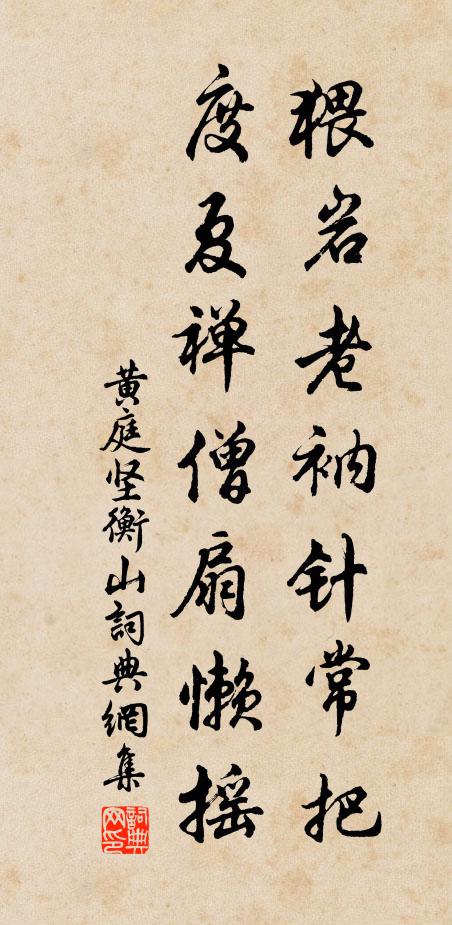 猥岩老衲针常把
度夏禅僧扇懒摇
黄庭坚衡山詞典網集
詞典网印